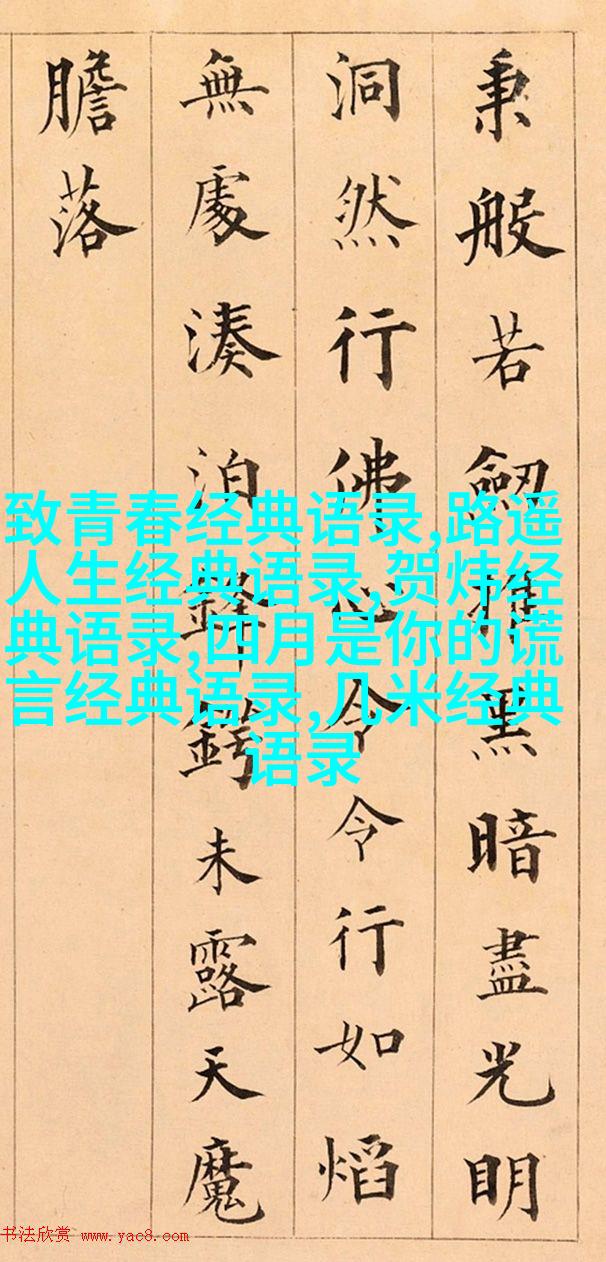 秉般若劒黑暗盡光明
洞然行佛心令令行如熖
無處湊泊鋒鍔未露天魔
膽落
致青春经典语录,路遥
人生经典语录,贺炜经
典语录,四月是你的谎
言经典语录,几米经典
语录
书法欣赏 www.yac8.com